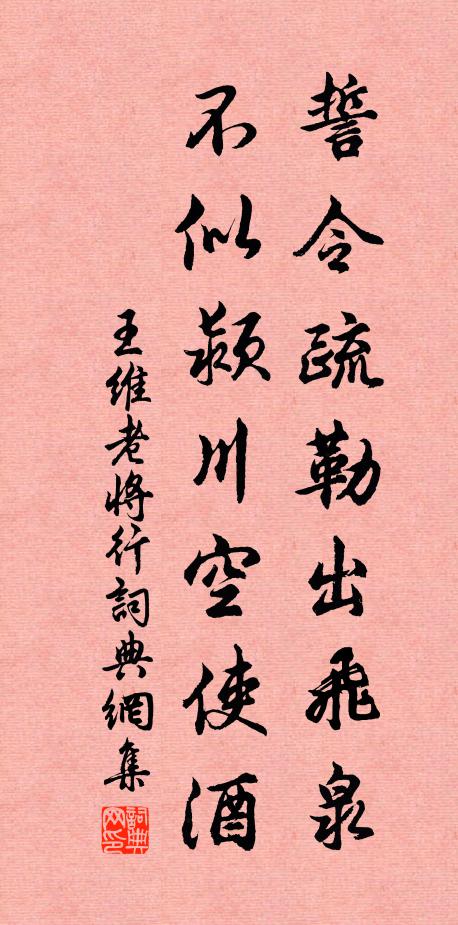 誓令疏勒出飛泉
不似潁川空使酒
王維老將行詞典網集
詞典網印